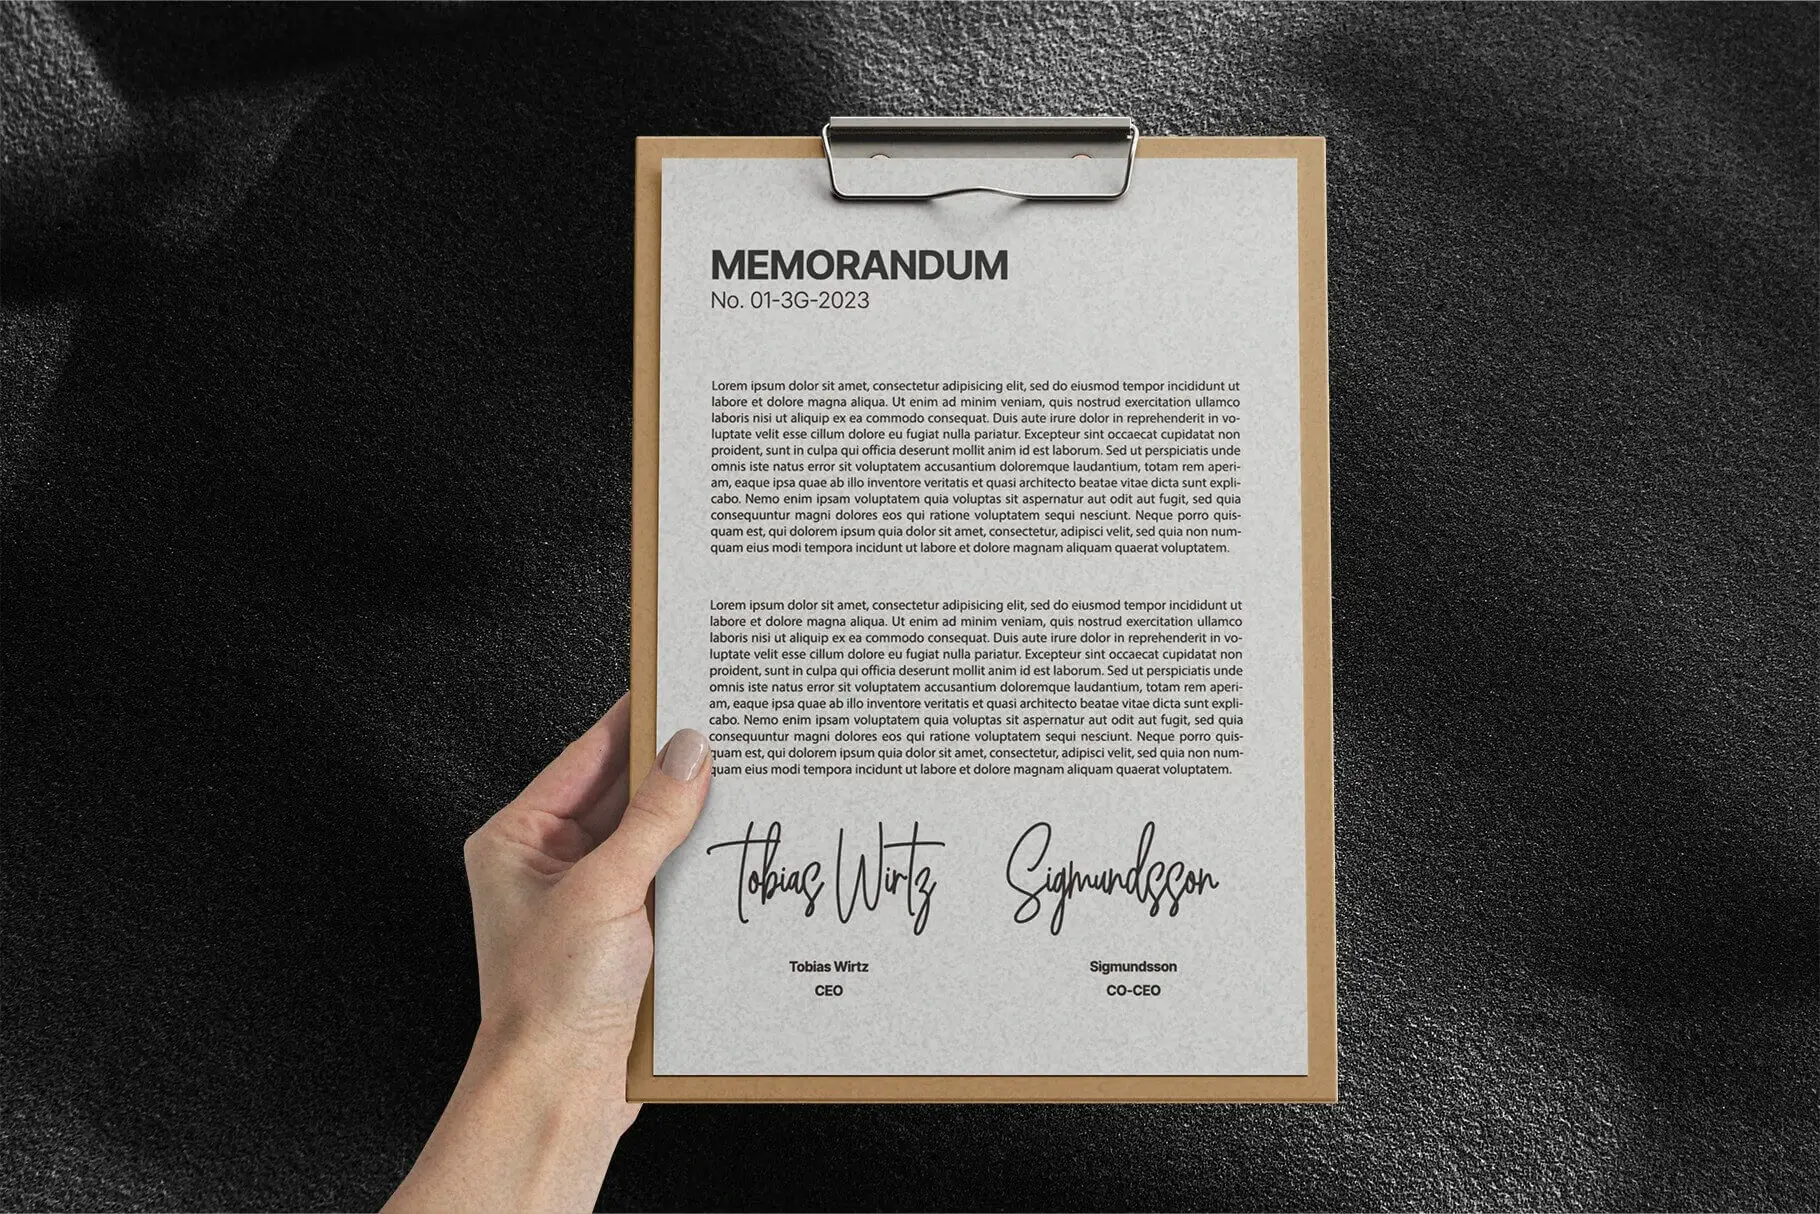 MEMORANDUM
No. 01-3G-2023
Lorem ipsum dolor sit amet, consectetur adipisicing elit, sed do eiusmod tempor incididunt ut
labore et dolore magna aliqua. Ut enim ad minim veniam, quis nostrud exercitation ullamco
laboris nisi ut aliquip ex ea commodo consequat. Duis aute irure dolor in reprehenderit in vo-
luptate velit esse cillum dolore eu fugiat nulla pariatur. Excepteur sint occaecat cupidatat non
proident, sunt in culpa qui officia deserunt mollit anim id est laborum. Sed ut perspiciatis unde
omnis iste natus error sit voluptatem accusantium doloremque laudantium, totam rem aperi-
am, eaque ipsa quae ab illo inventore veritatis et quasi architecto beatae vitae dicta sunt expli-
cabo. Nemo enim ipsam voluptatem quia voluptas sit aspernatur aut odit aut fugit, sed quia
consequuntur magni dolores eos qui ratione voluptatem sequi nesciunt. Neque porro quis-
quam est, qui dolorem ipsum quia dolor sit amet, consectetur, adipisci velit, sed quia non num-
quam eius modi tempora incidunt ut labore et dolore magnam aliquam quaerat voluptatem.
Lorem ipsum dolor sit amet, consectetur adipisicing elit, sed do eiusmod tempor incididunt ut
labore et dolore magna aliqua. Ut enim ad minim veniam, quis nostrud exercitation ullamco
laboris nisi ut aliquip ex ea commodo consequat. Duis aute irure dolor in reprehenderit in vo-
luptate velit esse cillum dolore eu fugiat nulla pariatur. Excepteur sint occaecat cupidatat non
proident, sunt in culpa qui officia deserunt mollit anim id est laborum. Sed ut perspiciatis unde
omnis iste natus error sit voluptatem accusantium doloremque laudantium, totam rem aperi-
am, eaque ipsa quae ab illo inventore veritatis et quasi architecto beatae vitae dicta sunt expli-
cabo. Nemo enim ipsam voluptatem quia voluptas sit aspernatur aut odit aut fugit, sed quia
consequuntur magni dolores eos qui ratione voluptatem sequi nesciunt. Neque porro quis-
quam est, qui dolorem ipsum quia dolor sit amet, consectetur, adipisci velit, sed quia non num-
quam eius modi tempora incidunt ut labore et dolore magnam aliquam quaerat voluptatem.
Tobias Wirtz Sigmundsson
Tobias Wirtz Sigmundsson
CEO CO-CEO